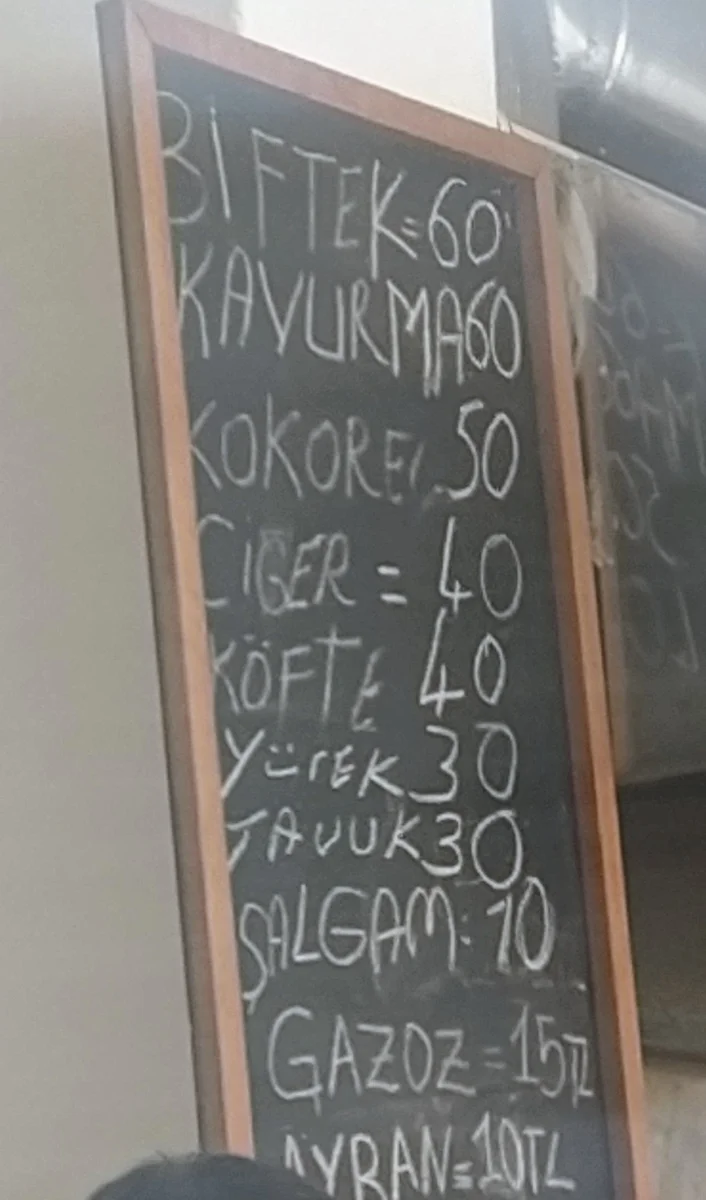 BİFTEK=60
KAVURMA60
KOKOREÇ 50
CİĞER = 40
KÖFTE 40
YüreK 30
TAVUK30
ŞALGAM: 10
GAZOZ=15TL
AYRAN=10TL